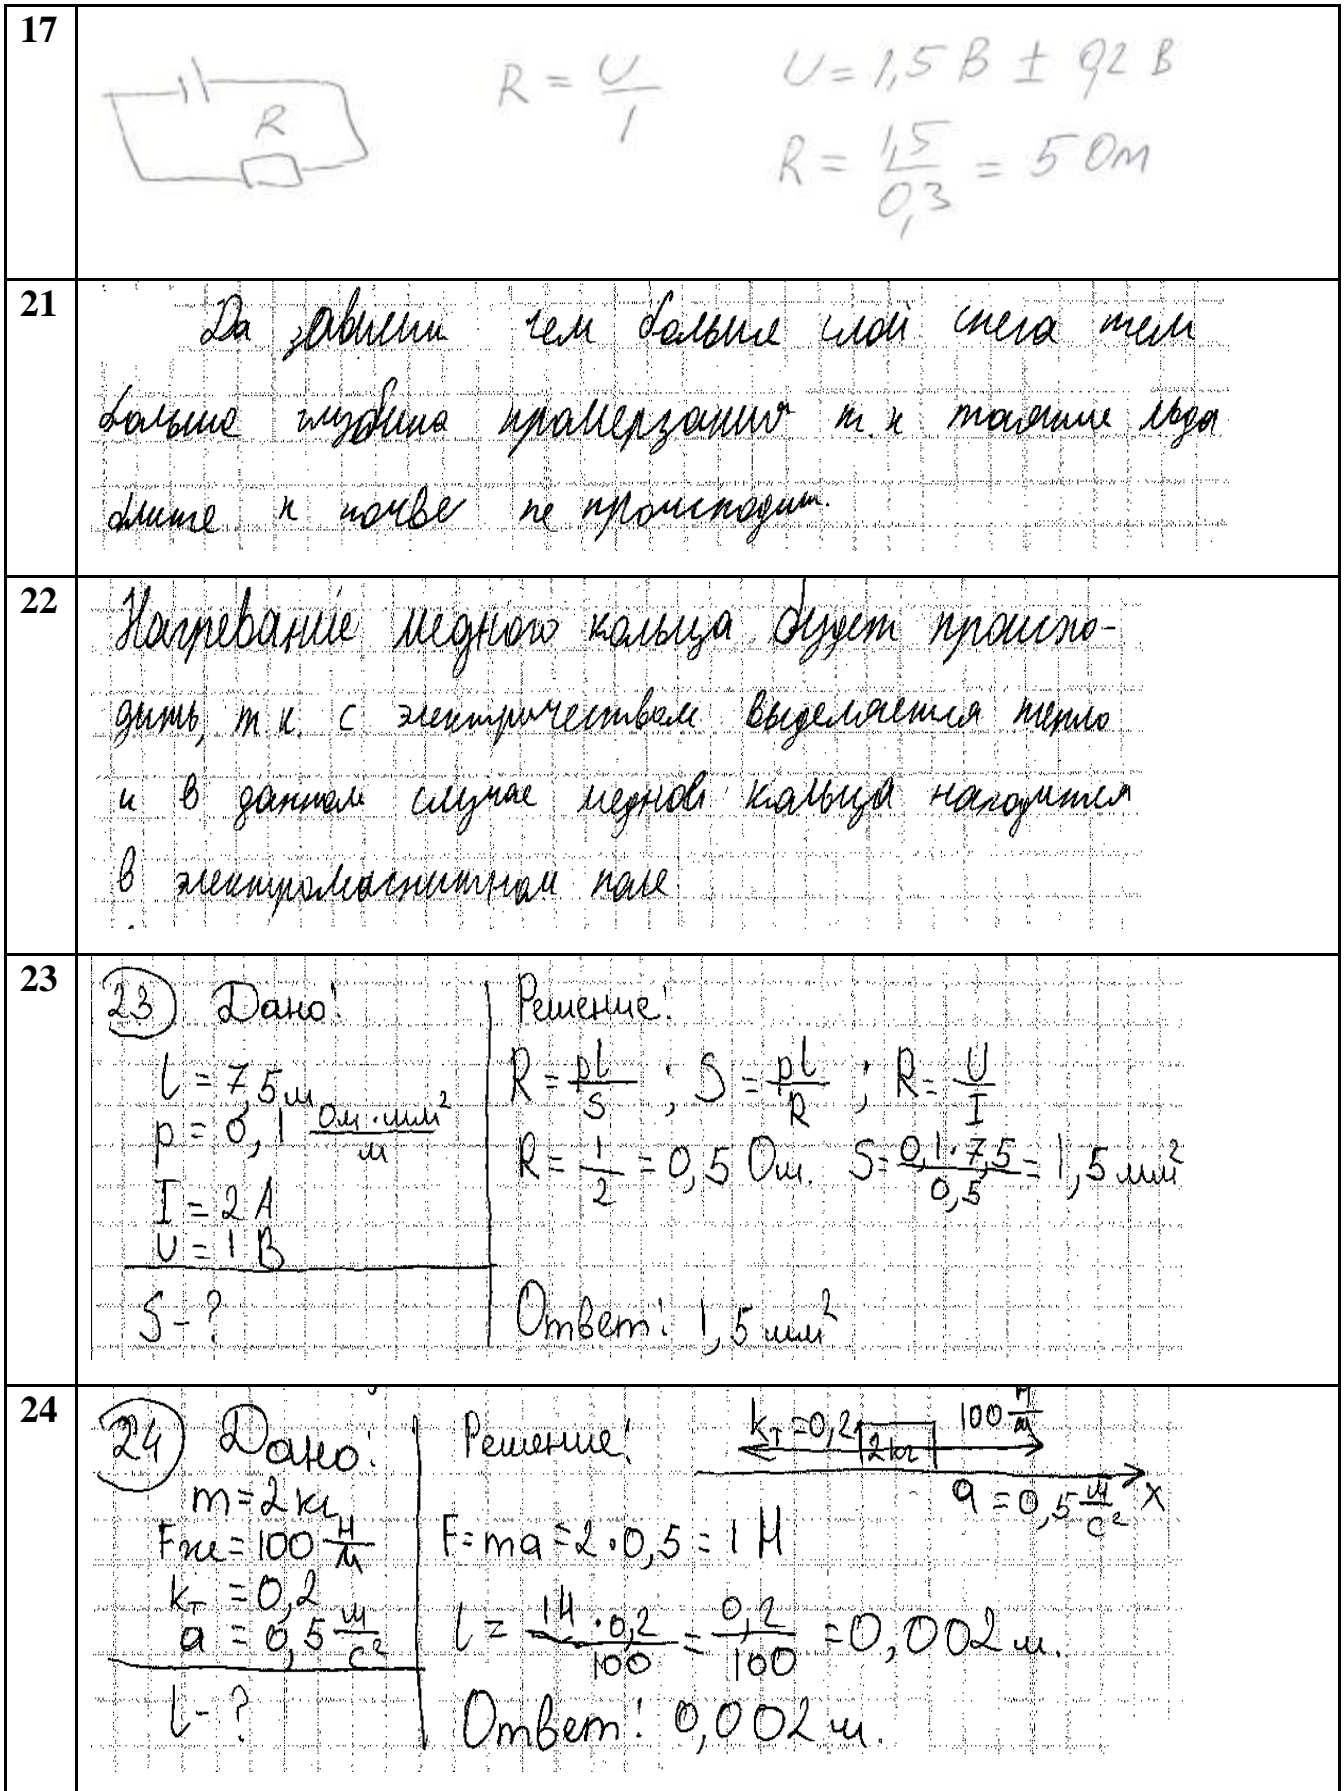 17
R
R = U/I
U = 1,5 В ± 0,2 В
R = 1,5/0,3 = 5 Ом
21
Да зависит чем больше слой снега тем
больше глубина промерзания т.к таяние льда
ближе к почве не происходит.
22
Нагревание медного кольца будет происхо-
дить, т.к. с электричеством выделяется тепло
и в данном случае медной кольца находится
в электромагнитном поле.
23
23 Дано:
l = 7,5 м
p = 0,1 Ом·мм²/м
I = 2 А
U = 1 В
S - ?
Решение:
R = pl/S ; S = pl/R ; R = U/I
R = 1/2 = 0,5 Ом. S = 0,1·7,5/0,5 = 1,5 мм²
Ответ: 1,5 мм²
24
24 Дано:
m = 2 кг
Fж = 100 Н/м
kт = 0,2
a = 0,5 м/с²
l - ?
Решение:
kт = 0,2
2кг
100 Н/м
a = 0,5 м/с²
x
F = ma = 2·0,5 = 1 Н
l = 1Н·0,2/100 = 0,2/100 = 0,002 м.
Ответ: 0,002 м.